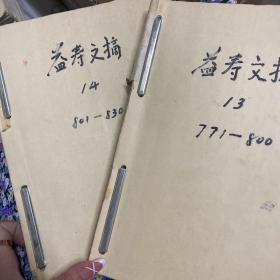 益寿文摘
14
801—830
益寿文摘
13
771—800